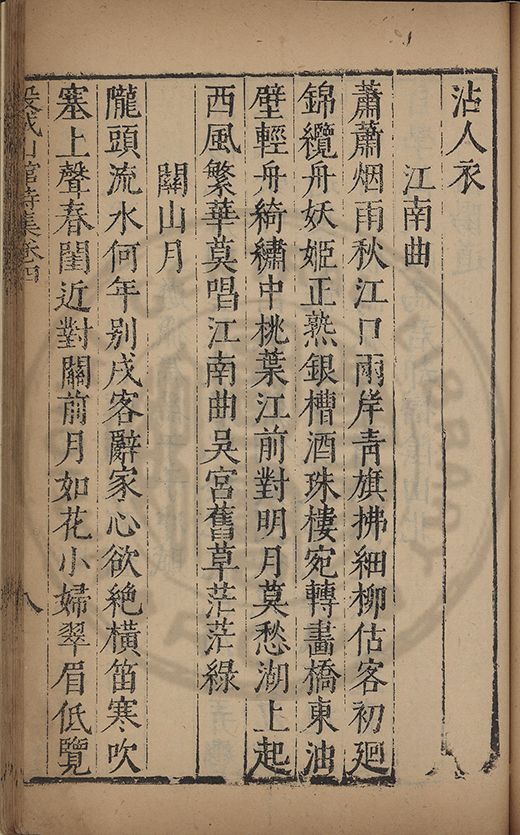 沾人衣
江南曲
蕭蕭烟雨秋江口兩岸青旗拂細柳估客初廻
錦纜舟妖姬正熟銀槽酒珠樓宛轉畫橋東油
壁輕舟綺繡中桃葉江前對明月莫愁湖上起
西風繁華莫唱江南曲吳宮舊草茫茫綠
關山月
隴頭流水何年别戍客辭家心欲絶橫笛寒吹
塞上聲春閨近對關前月如花小婦翠眉低覽
山館詩集卷四
八